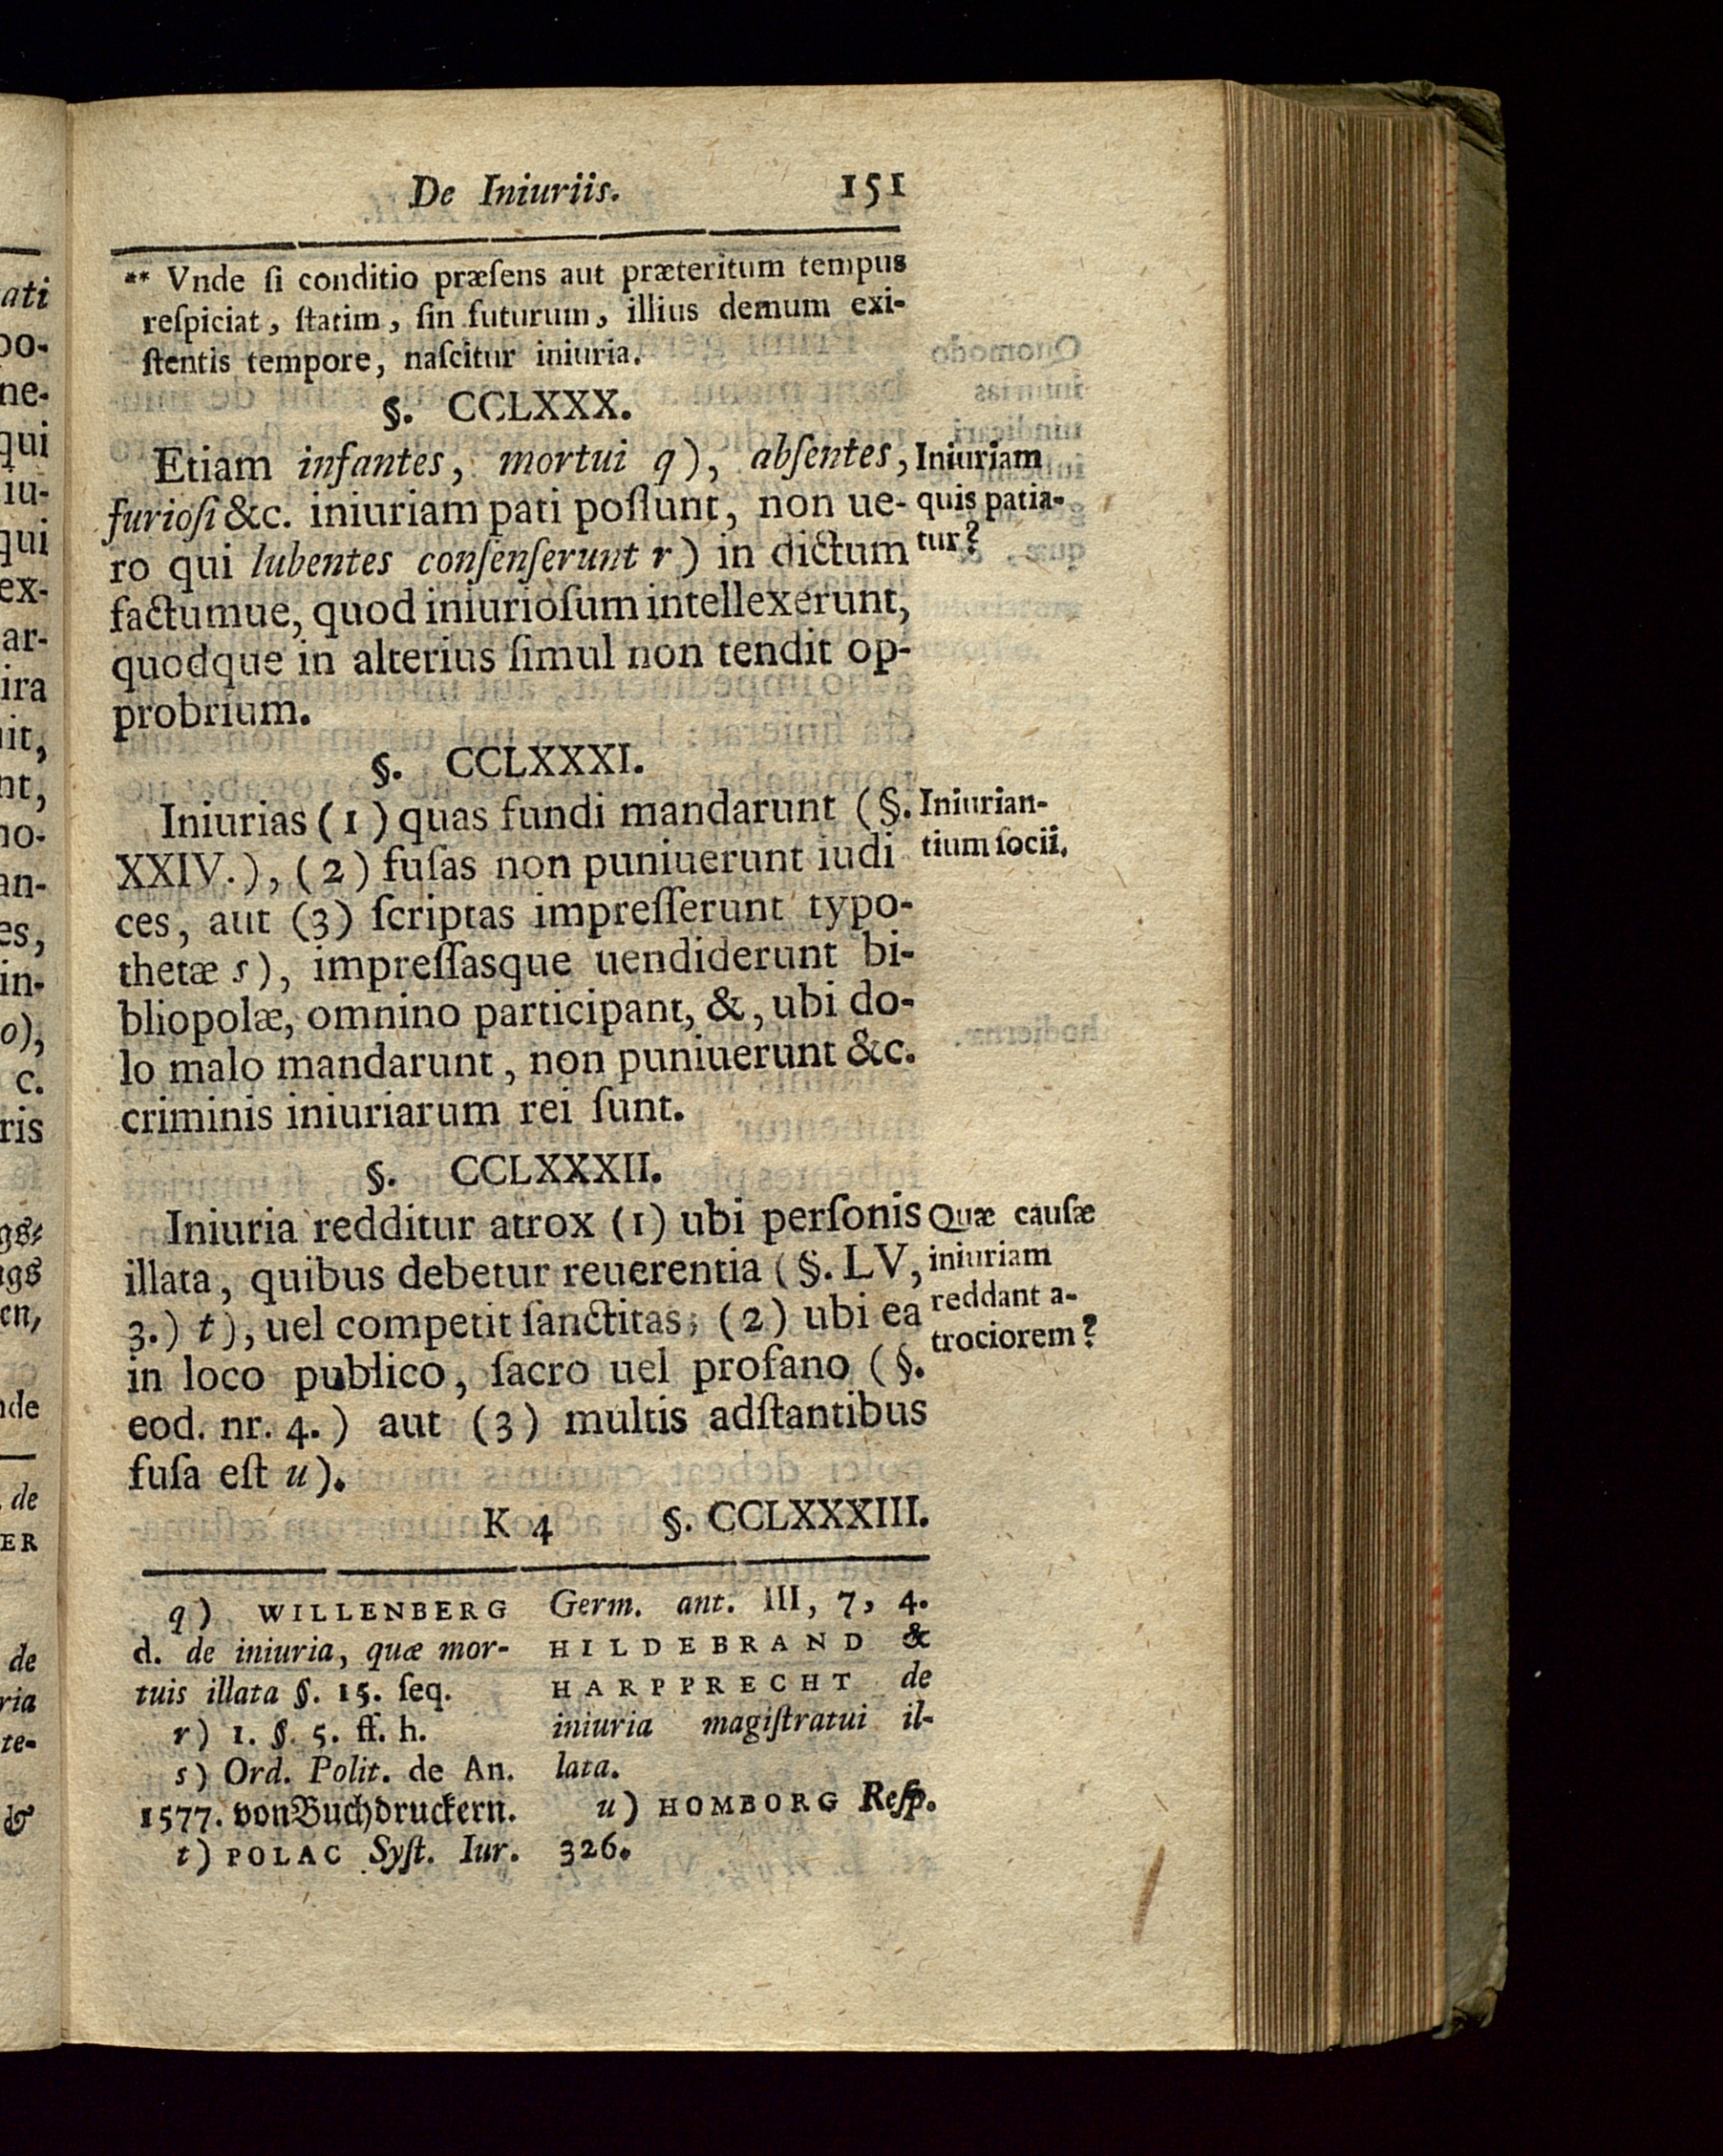 De Iniuriis. 151
** Vnde ſi conditio præſens aut præteritum tempus
reſpiciat, ſtatim, ſin futurum, illius demum exi-
ſtentis tempore, naſcitur iniuria.
§. CCLXXX.
Etiam infantes, mortui q), abſentes,
furioſi &c. iniuriam pati poſſunt, non ue-
ro qui lubentes conſenſerunt r) in dictum
factumue, quod iniurioſum intellexerunt,
quodque in alterius ſimul non tendit op-
probrium.
Iniuriam
quis patia-
tur?
§. CCLXXXI.
Iniurias (1) quas fundi mandarunt (§.
XXIV.), (2) fuſas non puniuerunt iudi
ces, aut (3) ſcriptas impreſſerunt typo-
thetæ s), impreſſasque uendiderunt bi-
bliopolæ, omnino participant, &, ubi do-
lo malo mandarunt, non puniuerunt &c.
criminis iniuriarum rei ſunt.
Iniurian-
tium ſocii.
§. CCLXXXII.
Iniuria redditur atrox (1) ubi perſonis
illata, quibus debetur reuerentia (§. LV,
3.) t), uel competit ſanctitas; (2) ubi ea
in loco publico, ſacro uel profano (§.
eod. nr. 4.) aut (3) multis adſtantibus
fuſa eſt u).
Quæ cauſæ
iniuriam
reddant a-
trociorem?
K 4 §. CCLXXXIII.
q) WILLENBERG
d. de iniuria, quæ mor-
tuis illata §. 15. ſeq.
r) 1. §. 5. ff. h.
s) Ord. Polit. de An.
1577. von Buchdruckern.
t) POLAC Syſt. Iur.
Germ. ant. III, 7, 4.
HILDEBRAND &
HARPPRECHT de
iniuria magiſtratui il-
lata.
u) HOMBORG Reſp.
326.